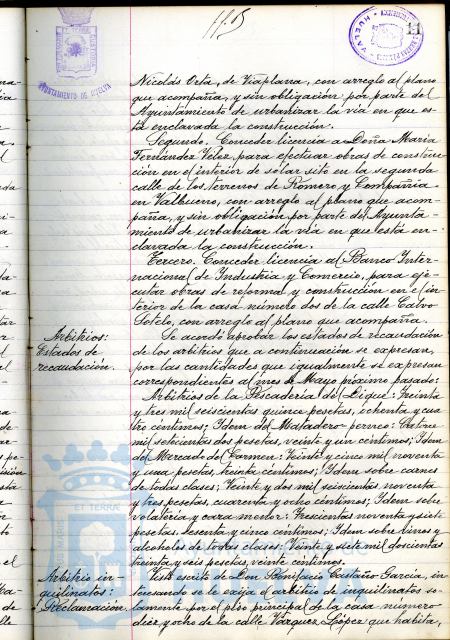 11
AYUNTAMIENTO DE HUELVA
HUELVA
Nicolás Orta, de Viaplana, con arreglo al plano
que acompaña, y sin obligación por parte del
Ayuntamiento de urbanizar la vía en que es-
tá enclavada la construcción.
Segundo. Conceder licencia a Doña María
Fernández Velez, para efectuar obras de construc-
ción en el interior de solar sito en la segunda
calle de los terrenos de Romero y Compañia
en Valbueno, con arreglo al plano que acom-
paña, y sin obligación por parte del Ayunta-
miento de urbanizar la vía en que está en-
clavada la construcción.
Tercero. Conceder licencia al Banco Inter-
nacional de Industria y Comercio, para eje-
cutar obras de reforma y construcción en el in-
terior de la casa número dos de la calle Calvo
Sotelo, con arreglo al plano que acompaña.
Arbitrios:
Estados de
recaudación.
Se acordó aprobar los estados de recaudación
de los arbitrios que a continuación se expresan,
por las cantidades que igualmente se expresan
correspondientes al mes de Mayo próximo pasado:
Arbitrios de la Pescadería del Dique: Treinta
y tres mil seiscientas quince pesetas, ochenta y cua-
tro céntimos; Idem del Matadero: Catorce
mil setecientas dos pesetas, veinte y un céntimos; Idem
del Mercado del Carmen: Veinte y cinco mil noventa
y una pesetas, treinta céntimos; Idem sobre carnes
de todas clases; Veinte y dos mil seiscientas noventa
y tres pesetas, cuarenta y ocho céntimos; Idem sobre
volatería y caza menor: Trescientas noventa y siete
pesetas, sesenta y cinco céntimos; Idem sobre vinos y
alcoholes de todas clases: Veinte y siete mil doscientas
treinta y seis pesetas, veinte céntimos.
Arbitrio in-
quilinatos:
Reclamación.
Visto escrito de Don Bonifacio Castaño García, in-
teresando se le exija el arbitrio de inquilinatos so-
lamente por el piso principal de la casa número
diez y ocho de la calle Vázquez López que habita,